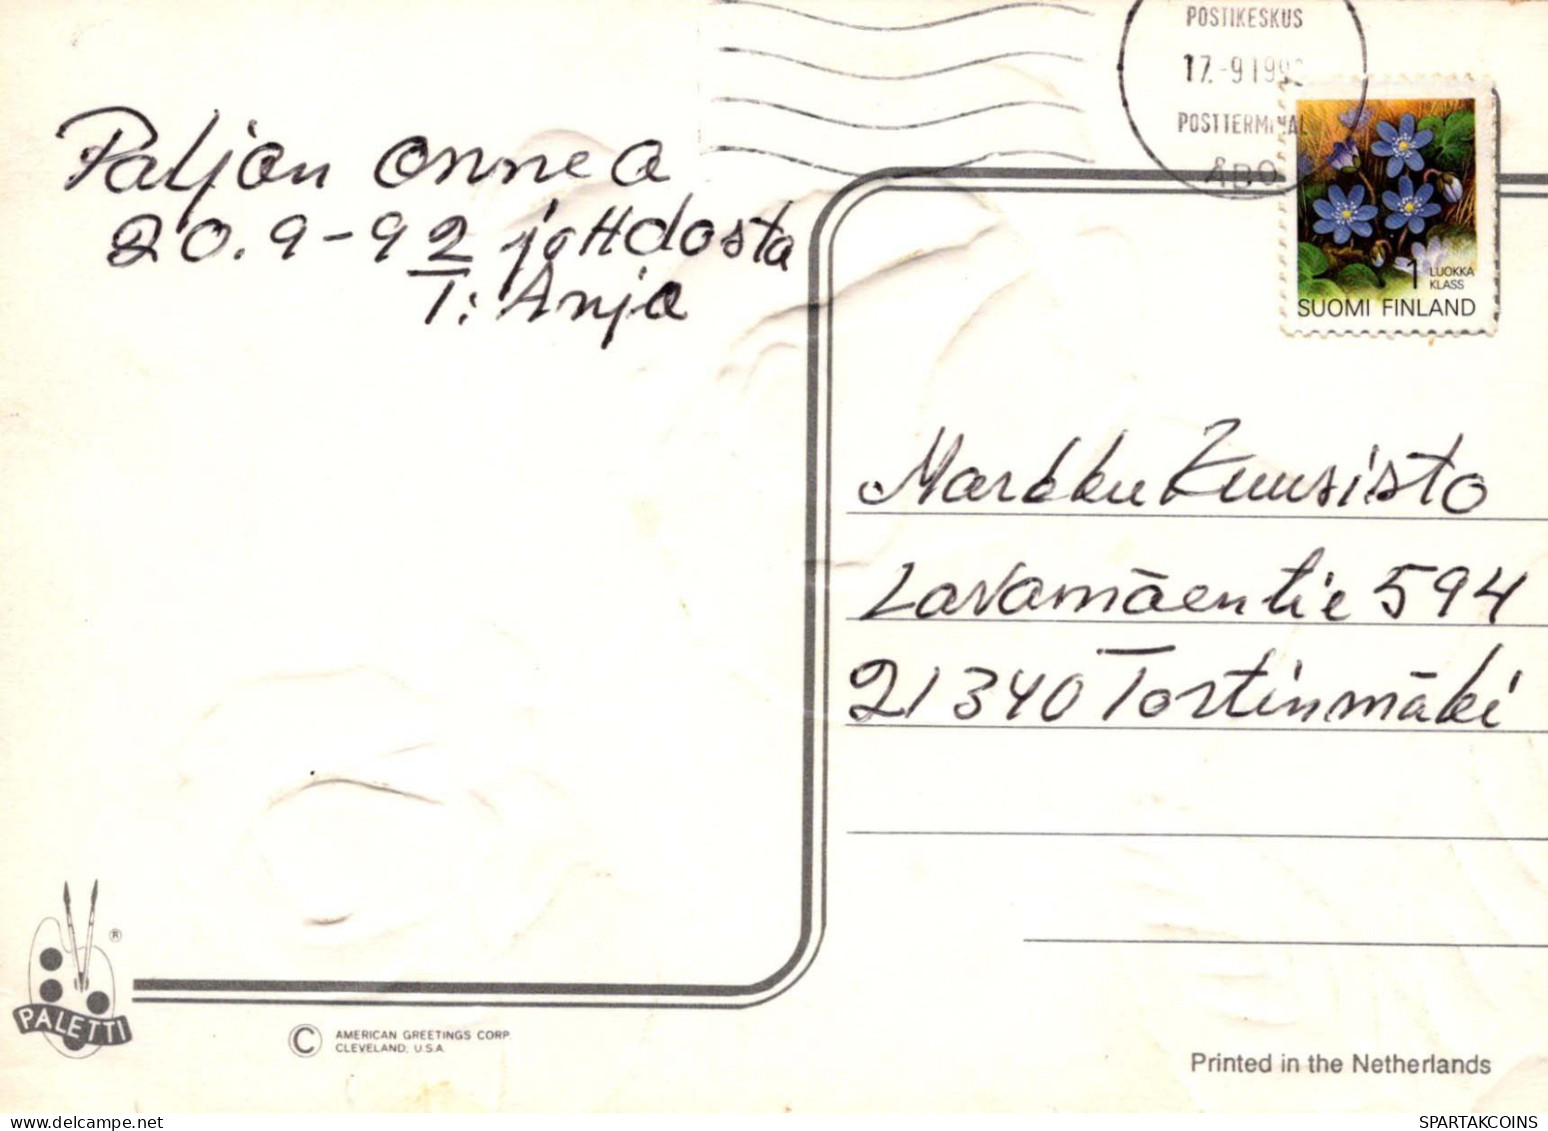 POSTIKESKUS
17.-9199
POSTTERMINAL
ÅBO
Paljon onnea
20.9-92 johdosta
T: Anja
1 LUOKKA
KLASS
SUOMI FINLAND
Markku Kuusisto
Lavamäentie 594
21340 Tortinmäki
PALETTI
®
© AMERICAN GREETINGS CORP.
CLEVELAND, U.S.A.
Printed in the Netherlands
SPARTAKCOINS